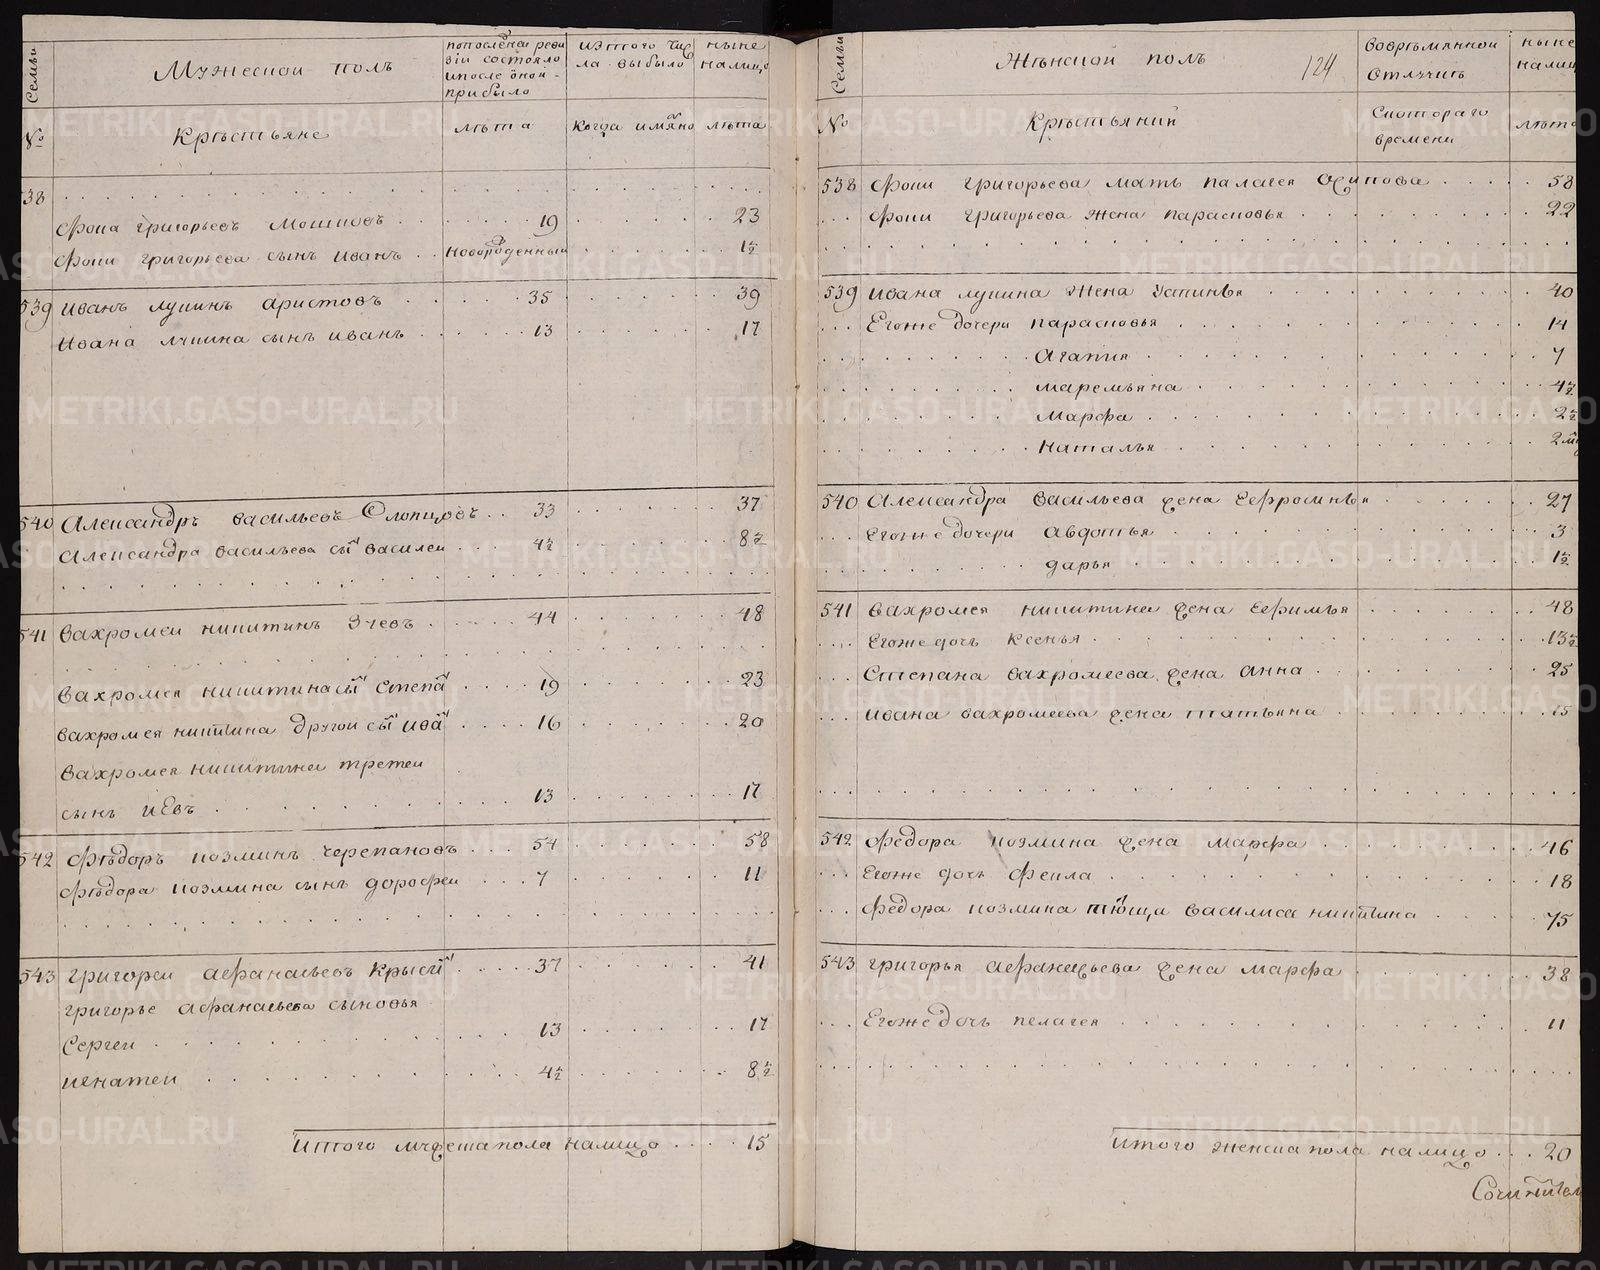 Семьи
Мужескои полъ
попоследнеи реви
зiи состояло
ипосле онои
прибыло
изтого чис
ла выбыло
ныне
налицо
№
Кръстьяне
лѣта
когда имяно
лѣта
38
Фона григорьевъ мошновъ 19 23
Фони григорьева сынъ иванъ новорожденныи 1½
539 иванъ лупинъ аристовъ 35 39
ивана лупина сынъ иванъ 13 17
540 Александръ васильевъ Слопцовъ 33 37
Александра васильева сы василеи 4½ 8½
541 вахромеи никитинъ Зуевъ 44 48
вахромея никитина сы степа 19 23
вахромея никитина другои сы ива 16 20
вахромея никитина третеи
сынъ иЕвъ 13 17
542 Фѣдоръ козминъ черепановъ 54 58
Фѣдора козмина сынъ дорофеи 7 11
543 григореи афанасьевъ Крысе 37 41
григорье афанасьева сыновья
Сергеи 13 17
игнатеи 4½ 8½
Итого мужеска пола налицо 15
Семьи
Жѣнскои полъ
124
вовремяннои
отлучкѣ
ныне
налиц
№
Кръстьянки
Скотораго
времени
лѣта
538 Фони григорьева мать палагея Осипова 58
Фони григорьева жена парасковья 22
539 ивана лупина жена Устинья 40
Егоже дочери парасковья 14
Агапия 7
маремьяна 4½
марфа 2½
наталья 2 м
540 Александра васильева жена Ефросинья 27
Егоже дочери Авдотья 3
дарья 1½
541 вахромея никитина жена Ефимья 48
Егоже дочь Ксенья 13½
Степана вахромеева жена анна 25
ивана вахромеева жена татьяна 15
542 Федора козмина жена марфа 46
Егоже дочь Фекла 18
Федора козмина тюща василиса никитина 75
543 григорья афанасьева жена марфа 38
Егоже дочь пелагея 11
Итого женска пола налицо 20
METRIKI.GASO-URAL.RU